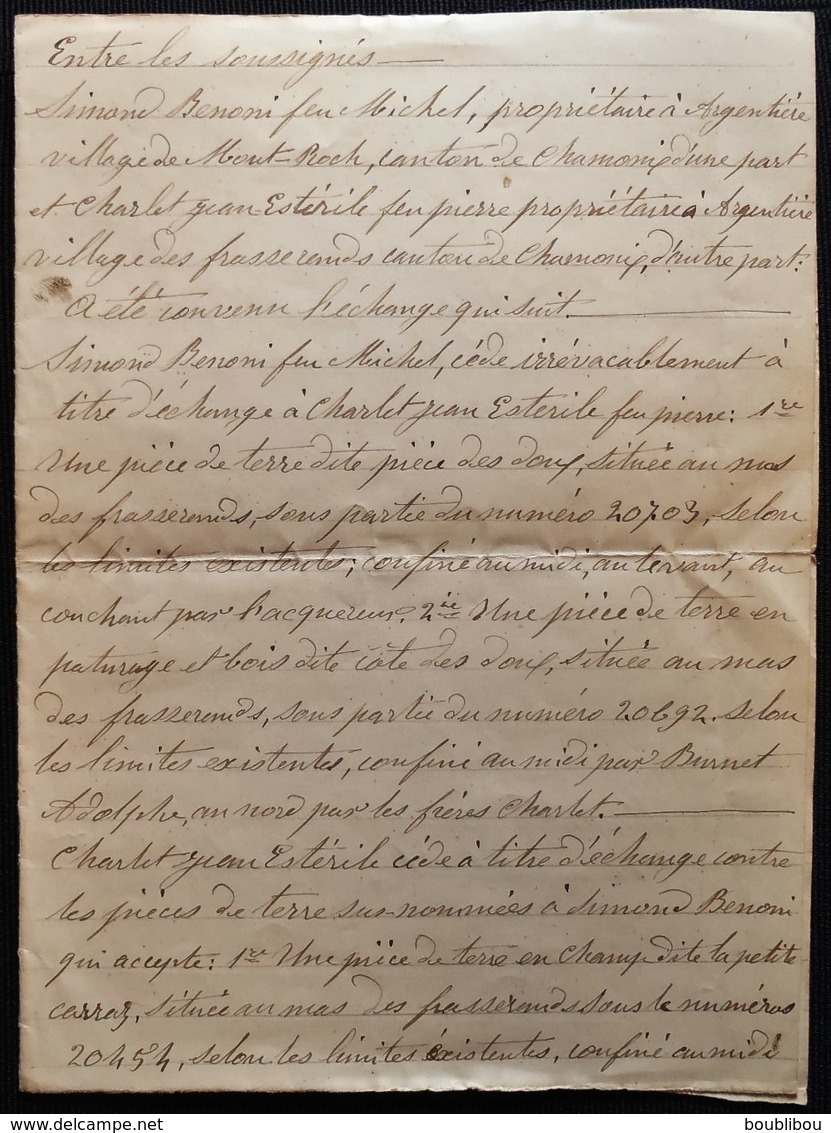 Entre les soussignés —
Simond Benoni feu Michel, propriétaire à Argentière
village de Mont-Roch, canton de Chamonix, d'une part
et Charlet jean-Estérile feu pierre propriétaire à Argentière
village des frasserands canton de Chamonix, d'autre part:
A été convenu l'échange qui suit. —
Simond Benoni feu Michel, cède irrévacablement à
titre d'échange à Charlet jean Esterile feu pierre: 1re
Une pièce de terre dite pièce des doux, située au mas
des frasserands, sous partie du numéro 20703, selon
les limites existentes; confiné au midi, au levant, au
couchant par l'acquereur. 2ie Une pièce de terre en
paturage et bois dite côte des doux, située au mas
des frasserands, sous partie du numéro 20692. selon
les limites existentes, confiné au midi par Burnet
Adolphe, au nord par les frères Charlet. —
Charlet jean Estérile cède à titre d'échange contre
les pièces de terre sus-nommées à Simond Benoni
qui accepte: 1re Une pièce de terre en champ dite la petite
carraz, située au mas des frasserands sous le numéros
20454, selon les limites éxistentes, confiné au midi
boublibou